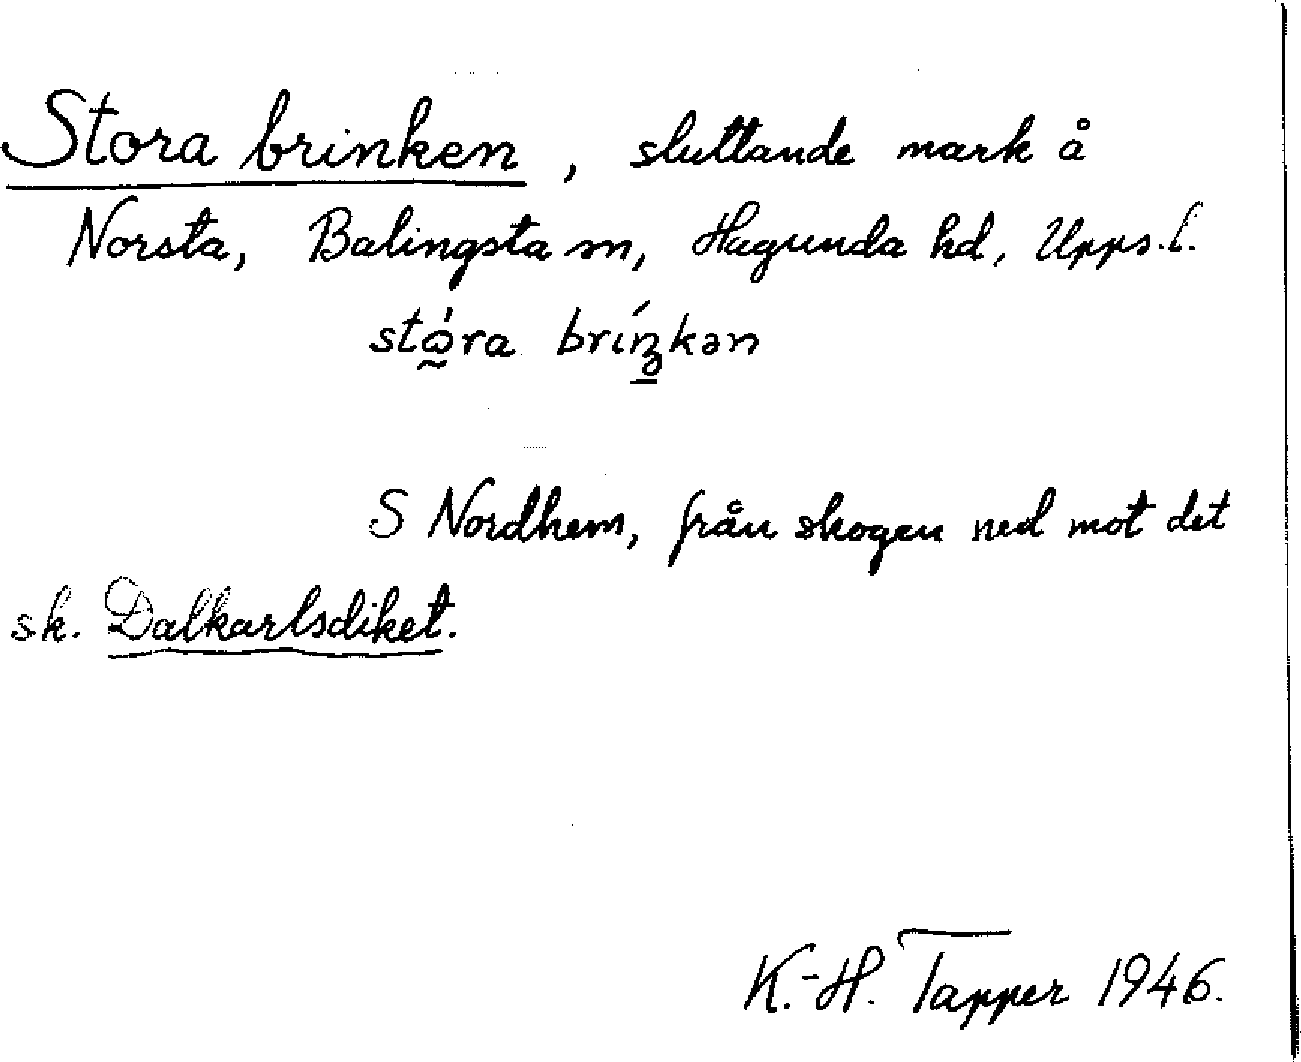 Stora brinken, sluttande mark å
Norsta, Balingsta sn, Hagunda hd, Upps. l.
stó̰ra bríŋ̲kən
S Nordhem, från skogen ned mot det
sk. Dalkarlsdiket.
K.-H. Tapper 1946.